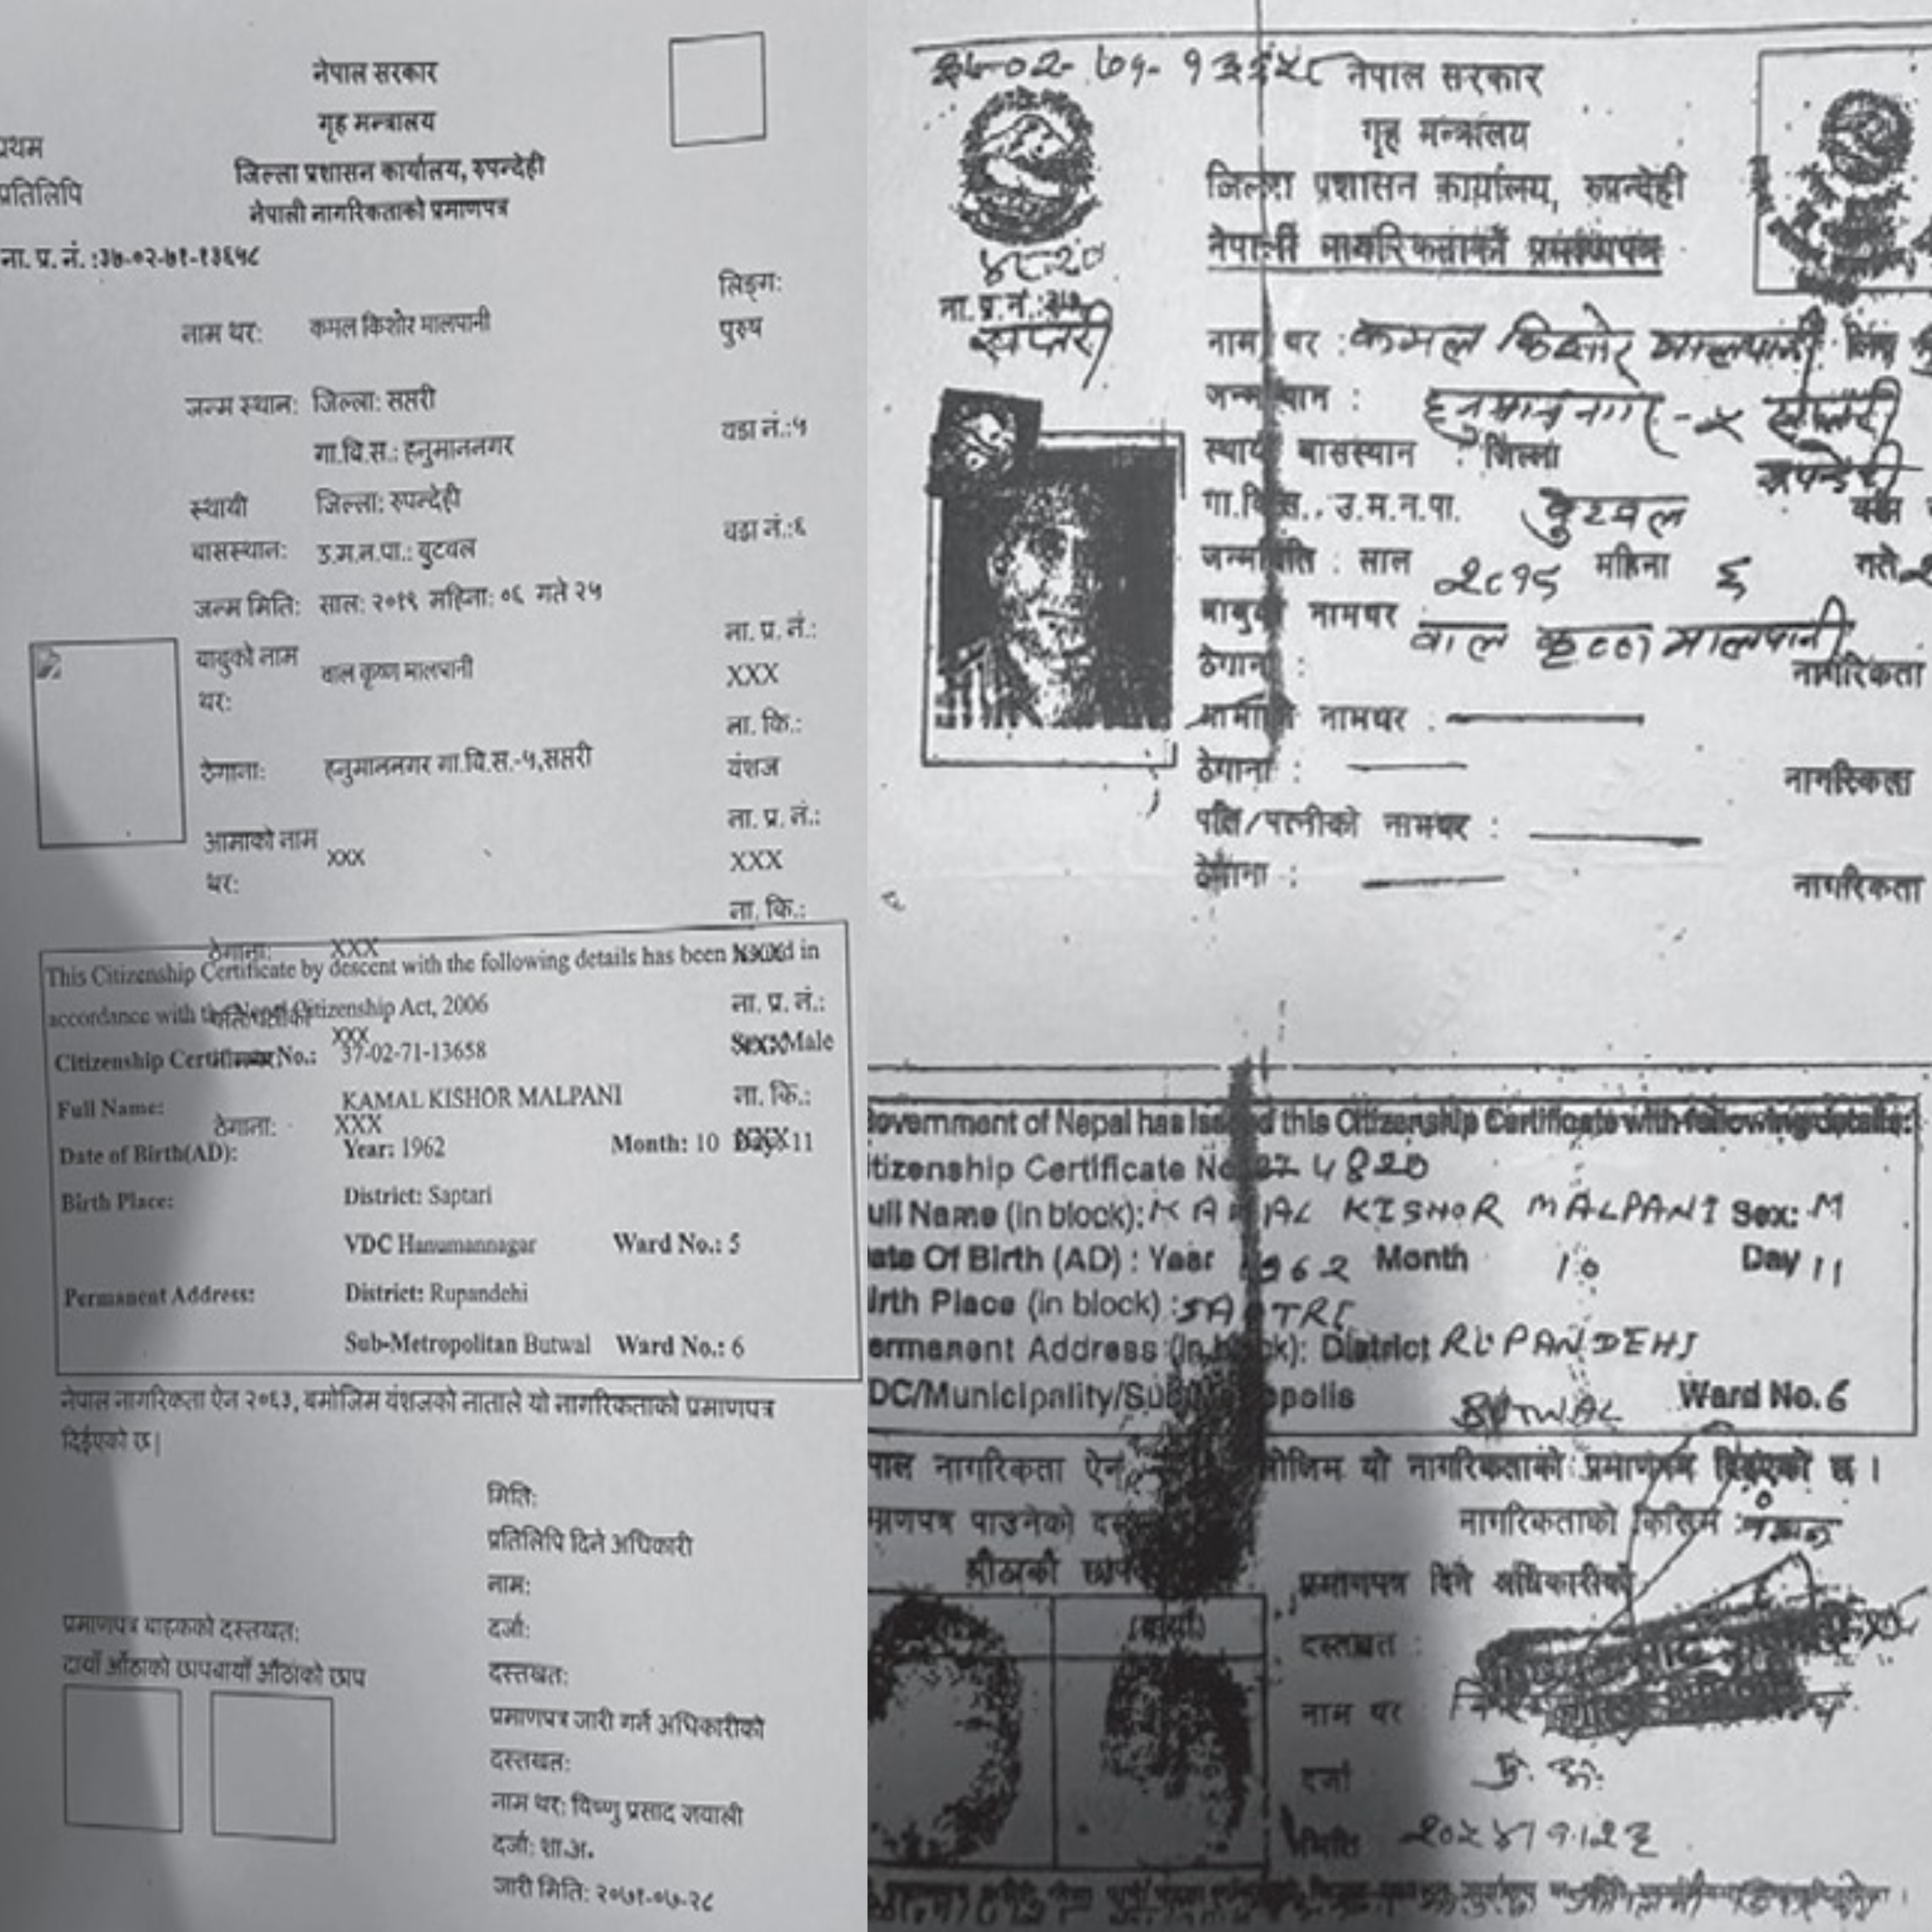 नेपाल सरकार
गृह मन्त्रालय
जिल्ला प्रशासन कार्यालय, रुपन्देही
नेपाली नागरिकताको प्रमाणपत्र
प्रतिलिपि
ना. प्र. नं. :३७-०२-७१-१३६५८
लिङ्ग:
नाम थर: कमल किशोर मालपानी पुरुष
जन्म स्थान: जिल्ला: सप्तरी
गा.वि.स.: हनुमाननगर वडा नं.:५
स्थायी जिल्ला: रुपन्देही
बासस्थान: उ.म.न.पा.: बुटवल वडा नं.:६
जन्म मिति: साल: २०१९ महिना: ०६ गते २५
ना. प्र. नं.:
बाबुको नाम
थर: बाल कृष्ण मालपानी XXX
ना. कि.:
ठेगाना: हनुमाननगर गा.वि.स.-५,सप्तरी वंशज
ना. प्र. नं.:
आमाको नाम
थर: XXX XXX
ना. कि.:
ठेगाना: XXX
This Citizenship Certificate by descent with the following details has been in
accordance with Citizenship Act, 2006
ना. प्र. नं.:
XXX
Citizenship No.: 37-02-71-13658 Male
Full Name: KAMAL KISHOR MALPANI ना. कि.:
ठेगाना: XXX
Date of Birth(AD): Year: 1962 Month: 10 11
Birth Place: District: Saptari
VDC Hanumannagar Ward No.: 5
Permanent Address: District: Rupandehi
Sub-Metropolitan Butwal Ward No.: 6
नेपाल नागरिकता ऐन २०६३, बमोजिम वंशजको नाताले यो नागरिकताको प्रमाणपत्र
दिईएको छ|
मिति:
प्रतिलिपि दिने अधिकारी
नाम:
दर्जा:
दस्तखत:
प्रमाणपत्र बाहकको दस्तखत:
दायाँ औंठाको छापबायाँ औंठाको छाप
प्रमाणपत्र जारी गर्ने अधिकारीको
दस्तखत:
नाम थर: विष्णु प्रसाद ज्ञवाली
दर्जा: शा.अ.
जारी मिति: २०७१-०७-२८
नेपाल सरकार
गृह मन्त्रालय
जिल्ला प्रशासन कार्यालय, रुपन्देही
नेपाली नागरिकताको प्रमाणपत्र
ना.प्र.नं.:
सप्तरी
नाम थर : कमल किशोर मालपानी
जन्मस्थान : हनुमाननगर-५ सप्तरी
स्थायी बासस्थान : जिल्ला रुपन्देही
गा.वि.स., उ.म.न.पा. बुटवल
जन्ममिति : साल २०१९ महिना ६ गते
बाबुको नामथर बाल कृष्ण मालपानी
ठेगाना : नागरिकता
आमाको नामथर :
ठेगाना : नागरिकता
पति/पत्नीको नामथर :
ठेगाना : नागरिकता
Government of Nepal has Issued this Citizenship Certificate with following details:
Citizenship Certificate No 4820
Full Name (in block): KAMAL KISHOR MALPANI Sex: M
Date Of Birth (AD) : Year 1962 Month 10 Day 11
Birth Place (in block) : SAPTRI
Permanent Address (in block): District RUPANDEHI
VDC/Municipality/Sub Metropolis BUTWAL Ward No. 6
नेपाल नागरिकता ऐन बमोजिम यो नागरिकताको प्रमाणपत्र दिईएको छ ।
प्रमाणपत्र पाउनेको
नागरिकताको किसिम :
प्रमाणपत्र दिने अधिकारीको
(बायाँ)
दस्तखत :
नाम थर
दर्जा
मिति